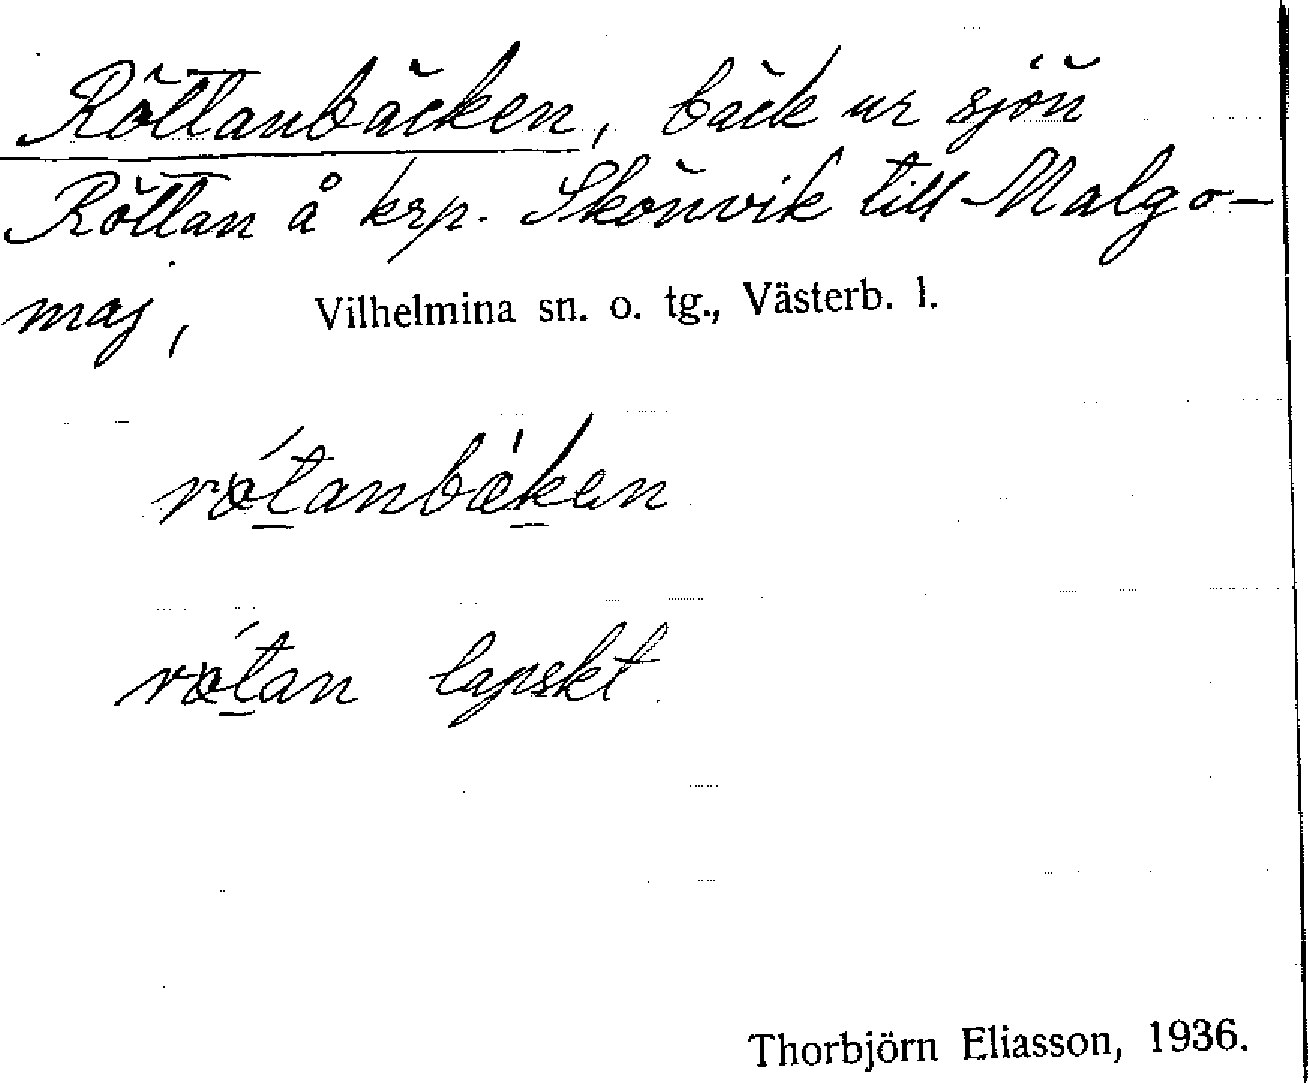 Röttanbäcken, bäck ur sjön
Röttan å krp. Skönvik till Malgo-
maj,    Vilhelmina sn. o. tg., Västerb. l.
rœ́t̲anbék̲en
rœ́t̲an lapskt.
Thorbjörn Eliasson, 1936.